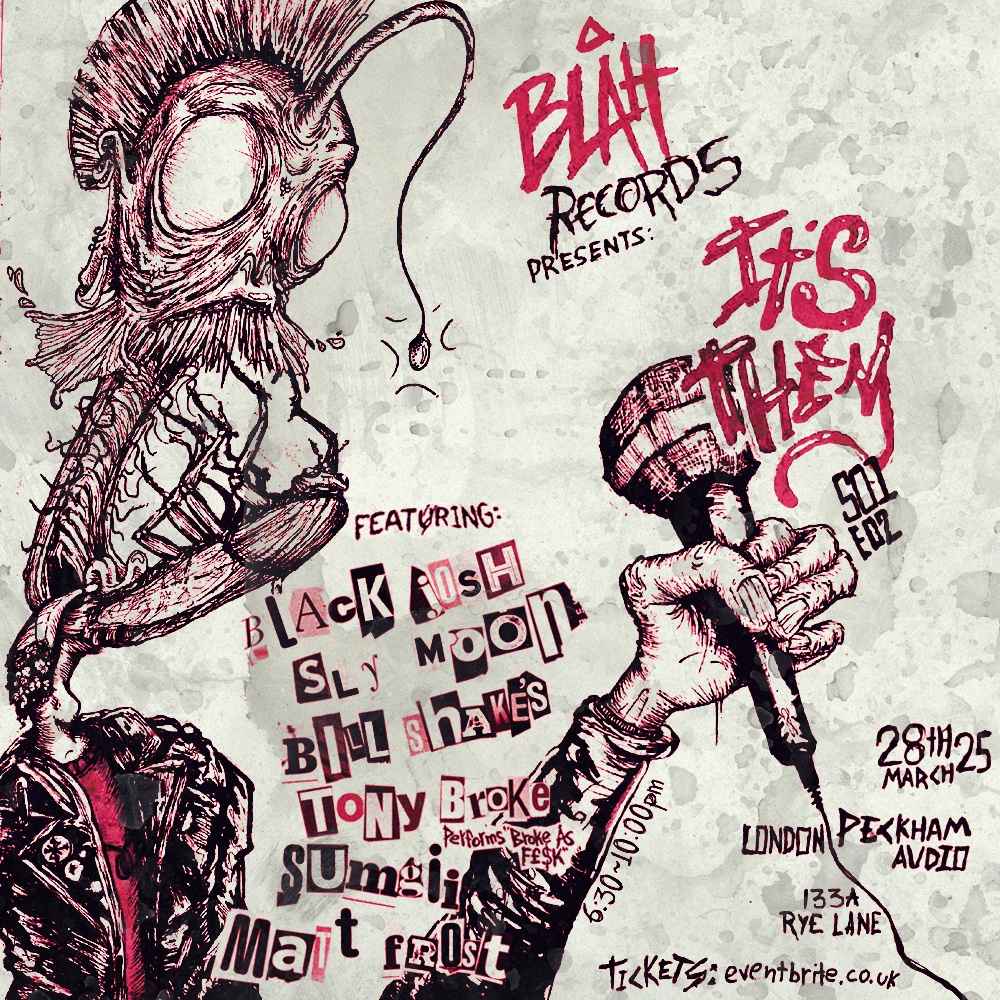 BLAH
RECORDS
PRESENTS:
IT'S
THEM
S01
E02
FEATURING:
BlACK jOSH
SLy MOOn
BILL SHAKE'S
ToNy BroKe
Performs "Broke As
F£$K"
SUmgii
Matt frost
6:30-10:00pm
28TH
MARCH 25
LONDON PECKHAM
AUDIO
133A
RYE LANE
TICKETS: eventbrite.co.uk